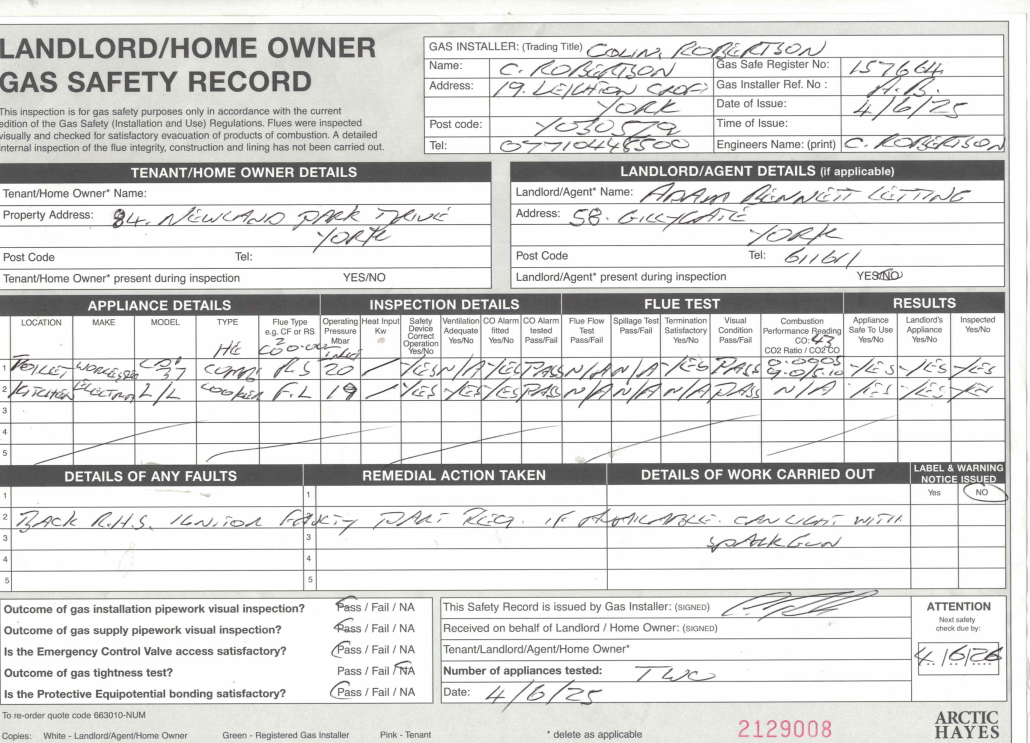 LANDLORD/HOME OWNER
GAS SAFETY RECORD
This inspection is for gas safety purposes only in accordance with the current
edition of the Gas Safety (Installation and Use) Regulations. Flues were inspected
visually and checked for satisfactory evacuation of products of combustion. A detailed
internal inspection of the flue integrity, construction and lining has not been carried out.
GAS INSTALLER: (Trading Title) COLIN. ROBERTSON
Name: C. ROBERTSON Gas Safe Register No: 157664
Address: 19. LEIGHTON CROFT Gas Installer Ref. No :
YORK Date of Issue: 4/6/25
Post code: Time of Issue:
Tel: 07710448500 Engineers Name: (print) C. ROBERTSON
TENANT/HOME OWNER DETAILS
Tenant/Home Owner* Name:
Property Address: 84. NEWLAND PARK DRIVE
YORK
Post Code Tel:
Tenant/Home Owner* present during inspection YES/NO
LANDLORD/AGENT DETAILS (if applicable)
Landlord/Agent* Name: ADAM BENNETT LETTING
Address: 58. GILLYGATE
YORK
Post Code Tel: 611611
Landlord/Agent* present during inspection YES/NO
APPLIANCE DETAILS INSPECTION DETAILS FLUE TEST RESULTS
LOCATION MAKE MODEL TYPE Flue Type e.g. CF or RS Operating Pressure Mbar Heat Input Kw Safety Device Correct Operation Yes/No Ventilation Adequate Yes/No CO Alarm fitted Yes/No CO Alarm tested Pass/Fail Flue Flow Test Pass/Fail Spillage Test Pass/Fail Termination Satisfactory Yes/No Visual Condition Pass/Fail Combustion Performance Reading CO: 43 CO2 Ratio / CO2 CO Appliance Safe To Use Yes/No Landlord's Appliance Yes/No Inspected Yes/No
HE inlet
1 TOILET WORCESTER COMBI RS 20 / YES N/A YES PASS N/A N/A YES PASS 0.0005 YES YES YES
2 KITCHEN L/L COOKER F.L 19 / YES YES YES PASS N/A N/A N/A PASS N/A YES YES YES
3
4
5
DETAILS OF ANY FAULTS REMEDIAL ACTION TAKEN DETAILS OF WORK CARRIED OUT LABEL & WARNING NOTICE ISSUED
1 1 Yes NO
2 BACK R.H.S. IGNITOR FAULTY PART REQ. IF AVAILABLE. CAN LIGHT WITH
3 3 SPARK GUN
4 4
5 5
Outcome of gas installation pipework visual inspection? Pass / Fail / NA
Outcome of gas supply pipework visual inspection? Pass / Fail / NA
Is the Emergency Control Valve access satisfactory? Pass / Fail / NA
Outcome of gas tightness test? Pass / Fail / NA
Is the Protective Equipotential bonding satisfactory? Pass / Fail / NA
This Safety Record is issued by Gas Installer: (SIGNED)
Received on behalf of Landlord / Home Owner: (SIGNED)
Tenant/Landlord/Agent/Home Owner*
Number of appliances tested: TWO
Date: 4/6/25
ATTENTION
Next safety
check due by:
4/6/26
To re-order quote code 663010-NUM
Copies: White - Landlord/Agent/Home Owner Green - Registered Gas Installer Pink - Tenant * delete as applicable 2129008
ARCTIC
HAYES